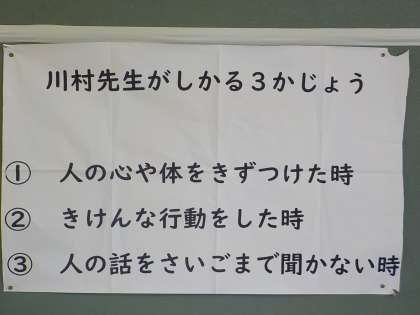 川村先生がしかる３かじょう
① 人の心や体をきずつけた時
② きけんな行動をした時
③ 人の話をさいごまで聞かない時